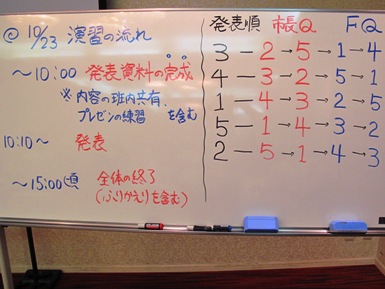 @ 10/23 演習の流れ
～10:00 発表資料の完成
※内容の班内共有、
プレゼンの練習 を含む
10:10～ 発表
～15:00頃 全体の終了
(ふりかえりを含む)
発表順 市長Q FQ
3－2→5→1→4
4－3→2→5→1
1－4→3→2→5
5－1→4→3→2
2－5→1→4→3